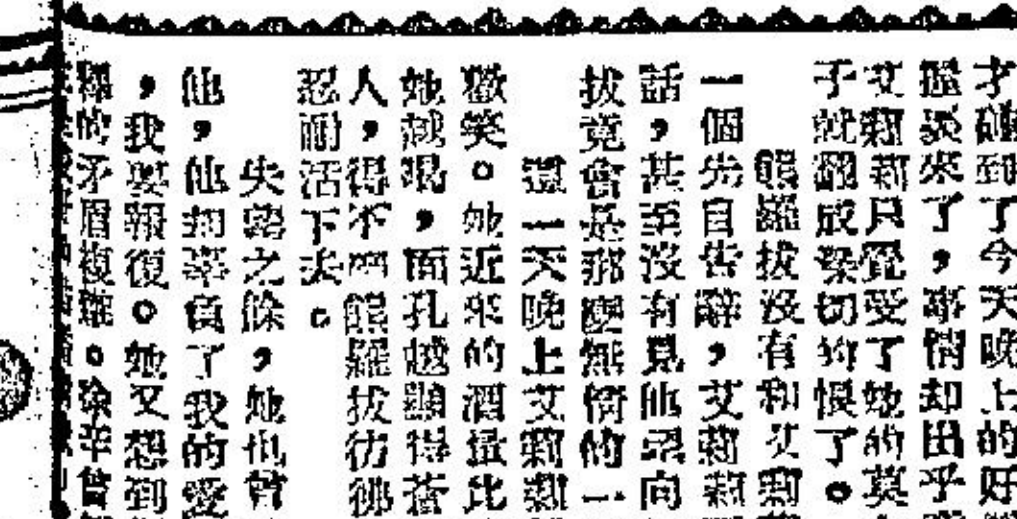 才碰到了今天晚上的好
來了，事情却出乎
艾莉莉只覺受了她的莫
子就變成深切的恨了。
熊羅拔沒有和艾莉
一個先自告辭，艾莉莉
話，甚至沒有見他向
拔竟會是那麼無情的一
這一天晚上艾莉莉
歡笑。她近來的酒量比
她越喝，面孔越顯得蒼
人，得不到熊羅拔彷彿
忍耐活下去。
失望之餘，她也曾
他，他却辜負了我的愛
，我要報復。她又想到
的矛盾複雜。徐辛曾